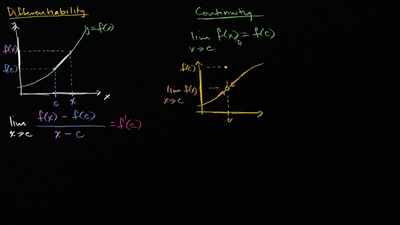 Differentiability
y=f(x)
f(x)
f(c)
c
x
x
lim x→c f(x) - f(c) / x - c = f'(c)
Continuity
lim x→c f(x) = f(c)
f(c)
lim x→c f(x)
c